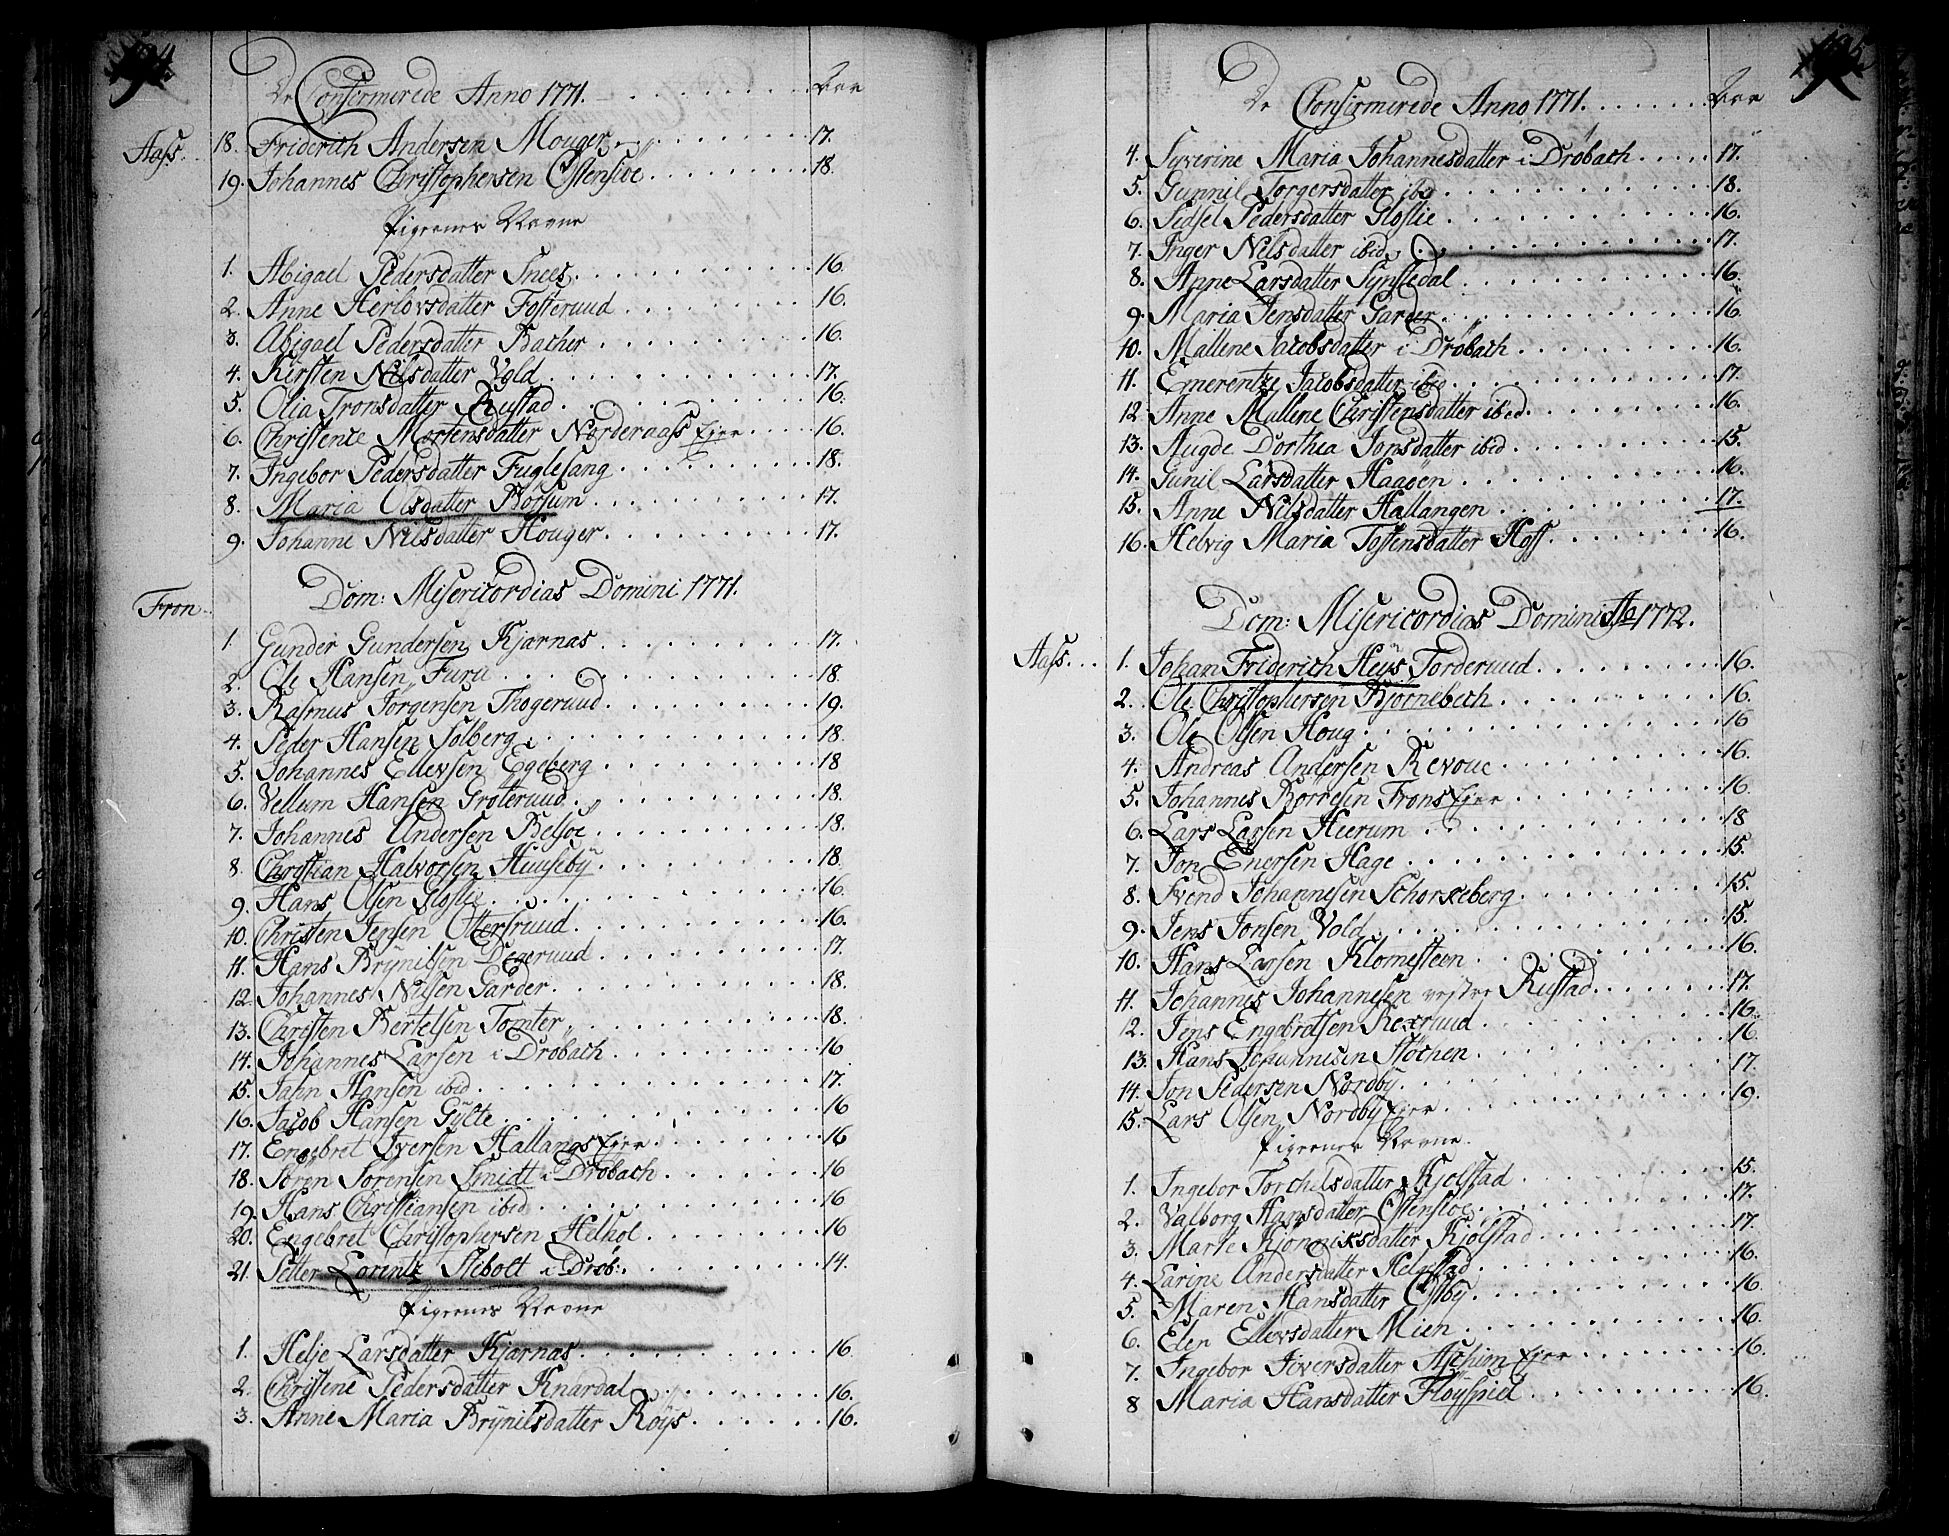 194.
De Confirmerede Anno 1771. Aar
Aass. 18. Friderich Andersen Mouger 17.
19. Johannes Christophersen Østensiøe 18.
Pigernes Navne
1. Abigael Pedersdatter Snees 16.
2. Anne Herlovsdatter Fosteruud 16.
3. Abigael Pedersdatter Bacher 16.
4. Kirsten Nilsdatter Vold 17.
5. Olia Tronsdatter Rustad 16.
6. Christence Mortensdatter Norderaass Eier 16.
7. Ingebor Pedersdatter Fuglesang 18.
8. Maria Olsdatter Borsum 17.
9. Johanne Nilsdatter Houger 17.
Dom: Misericordias Domini 1771.
Fron
1. Gunder Gundersen Kjærnas 17.
2. Ole Hansen Furu 18.
3. Rasmus Jörgensen Thogeruud 19.
4. Peder Hansen Solberg 18.
5. Johannes Ellevsen Egeberg 18
6. Vellum Hansen Groteruud 18.
7. Johannes Andersen Belsöe 18.
8. Christian Halvorsen Huuseby 18.
9. Hans Olsen Gloslie 16.
10. Christen Jensen Ottersruud 16.
11. Hans Brynilsen Degeruud 17.
12. Johannes Nilsen Garder 18.
13. Christen Bertelsen Tomter 18.
14. Johannes Larsen i Dröbach 16
15. Jahn Hansen ibid 17.
16. Jacob Hansen Gylte 16
17. Engebret Iversen Hallangs Eier 16
18. Sören Sörensen Smidt i Dröbach 16
19. Hans Christiansen ibid 16
20. Engebret Christophersen Helhol 16
21. Petter Lorentz Stebolt i Dröb: 14.
Pigernes Navne
1. Helje Larsdatter Kjærnas 16
2. Christene Pedersdatter Knardal 16.
3. Anne Maria Brynilsdatter Röys 16.
195.
De Confirmerede Anno 1771. Aar
4. Syverine Maria Johannesdatter i Dröbach 17.
5. Gunnil Torgersdatter ibid 18.
6. Sidsel Pedersdatter Gloslie 16.
7. Inger Nilsdatter ibid 17.
8. Anne Larsdatter Synstedal 16.
9. Maria Jensdatter Garder 16.
10. Mallene Jacobsdatter i Dröbach 16.
11. Emerentze Jacobsdatter ibid 17.
12 Anne Mallene Christensdatter ibid. 16.
13. Augde Dorthea Jonsdatter ibid 15.
14. Gunil Larsdatter Haaöen 16.
15. Anne Nilsdatter Hallangen 17.
16. Helvig Maria Tostensdatter Hoff 16.
Dom: Misericordias Domini Ao 1772.
Aass. 1. Johan Friderich Heys Torderuud 16.
2. Ole Christophersen Bjornebech 16.
3. Ole Olsen Houg 16
4. Andreas Andersen Revoue 16.
5. Johannes Borresen Frons Eier 16.
6. Lars Larsen Heerum 18
7. Jon Enersen Hage 15.
8. Svend Johannesen Schorkeberg 15.
9. Jens Jonsen Vold 15.
10. Hans Larsen Klomesteen 16.
11. Johannes Johannesen vestre Rustad 17.
12. Jens Engebretsen Rexruud 16.
13. Hans Johannesen Stöchen 16
14. Jon Pedersen Nordby 17.
15. Lars Olsen Nordby Eier 19.
Pigernes Navne
1. Ingebor Torchelsdatter Kjolstad 15.
2. Valborg Hansdatter Østensiøe 17.
3. Marte Kjönniksdatter Kjölstad 17.
4. Larine Andersdatter Helgestad 16.
5. Maren Hansdatter Østby 16
6. Elen Ellevsdatter Mien 16.
7. Ingebor Iversdatter Aschion Eier 16.
8 Maria Hansdatter Flöyspiel 16.